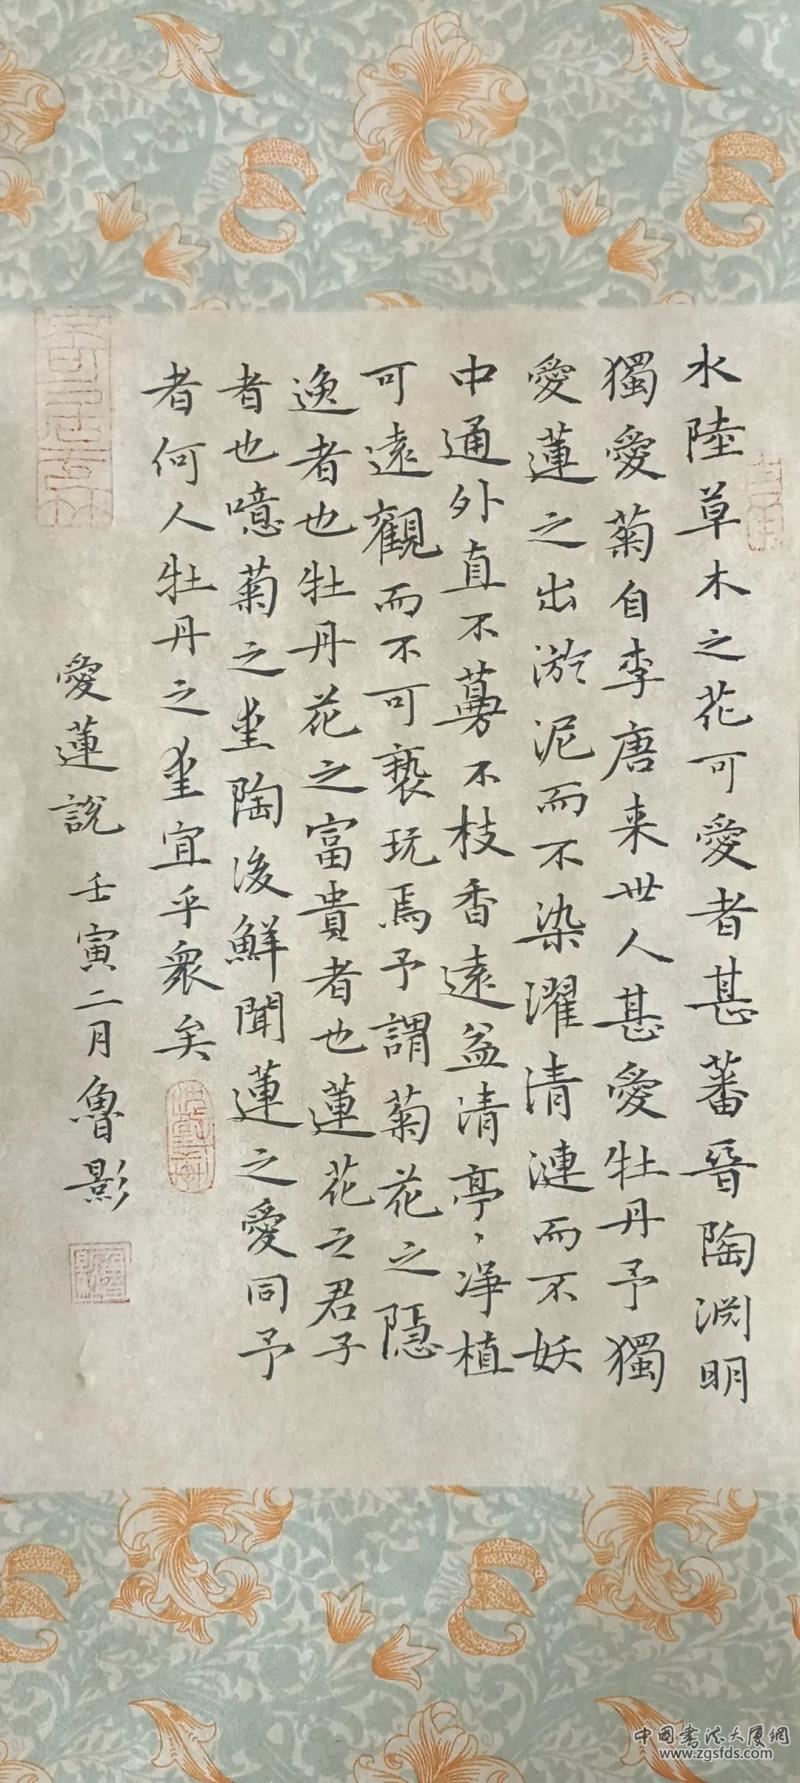 水陸草木之花可愛者甚蕃晉陶渊明
獨愛菊自李唐来世人甚愛牡丹予獨
愛蓮之出淤泥而不染濯清漣而不妖
中通外直不蔓不枝香遠益清亭、淨植
可遠觀而不可褻玩焉予謂菊花之隱
逸者也牡丹花之富貴者也蓮花之君子
者也噫菊之愛陶後鮮聞蓮之愛同予
者何人牡丹之愛宜乎衆矣
愛蓮說 壬寅二月魯影
中国书法大厦網
www.zgsfds.com